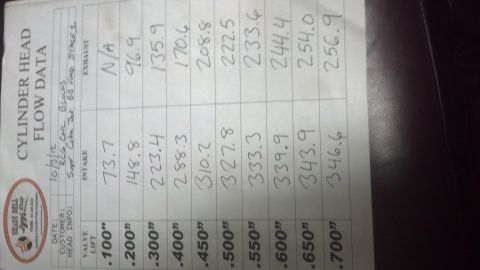 CYLINDER HEAD
FLOW DATA
DATE: 10/2/12
CUSTOMER:
HEAD INFO: Super Cobra Jet
VALVE LIFT INTAKE EXHAUST
.100" 73.7 N/A
.200" 148.8 96.9
.300" 223.4 135.9
.400" 288.3 170.6
.450" 310.2 208.8
.500" 327.8 222.5
.550" 333.3 233.6
.600" 339.9 244.4
.650" 343.9 254.0
.700" 346.6 256.9